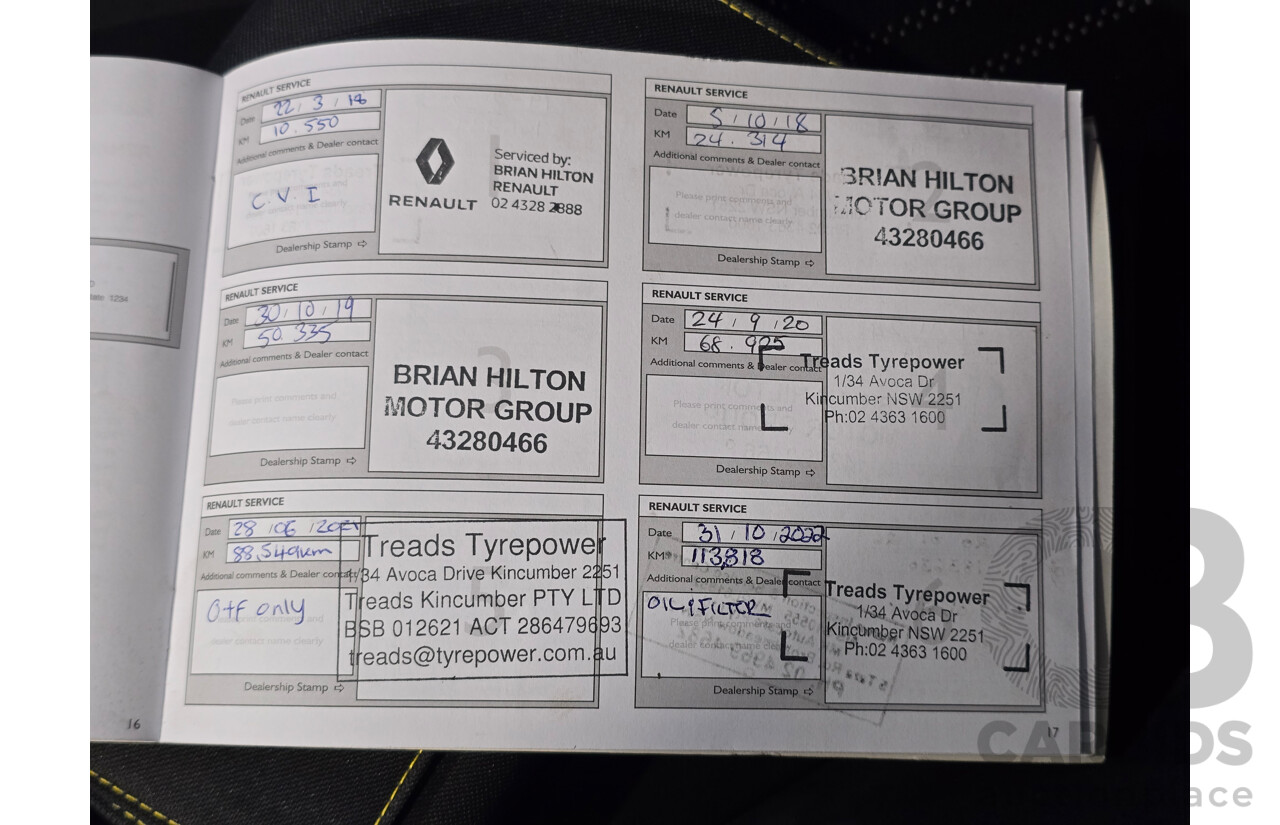 RENAULT SERVICE
Date 22 / 3 / 18
KM 10.550
Additional comments & Dealer contact
C.V.I
Dealership Stamp ⇨
RENAULT
Serviced by:
BRIAN HILTON
RENAULT
02 4328 2888
RENAULT SERVICE
Date 5 / 10 / 18
KM 24.314
Additional comments & Dealer contact
Please print comments and
dealer contact name clearly
Dealership Stamp ⇨
BRIAN HILTON
MOTOR GROUP
43280466
RENAULT SERVICE
Date 30 / 10 / 19
KM 50.335
Additional comments & Dealer contact
Please print comments and
dealer contact name clearly
Dealership Stamp ⇨
BRIAN HILTON
MOTOR GROUP
43280466
RENAULT SERVICE
Date 24 / 9 / 20
KM 68.925
Additional comments & Dealer contact
Please print comments and
dealer contact name
Dealership Stamp ⇨
Treads Tyrepower
1/34 Avoca Dr
Kincumber NSW 2251
Ph:02 4363 1600
RENAULT SERVICE
Date 28 / 06 / 2021
KM 88,549km
Additional comments & Dealer contact
O+F only
dealer contact name clearly
Dealership Stamp ⇨
Treads Tyrepower
1/34 Avoca Drive Kincumber 2251
Treads Kincumber PTY LTD
BSB 012621 ACT 286479693
treads@tyrepower.com.au
RENAULT SERVICE
Date 31 / 10 / 2022
KM 113,818
Additional comments & Dealer contact
OIL & FILTER
Please print comments and
dealer contact name
Dealership Stamp ⇨
Treads Tyrepower
1/34 Avoca Dr
Kincumber NSW 2251
Ph:02 4363 1600
16
17